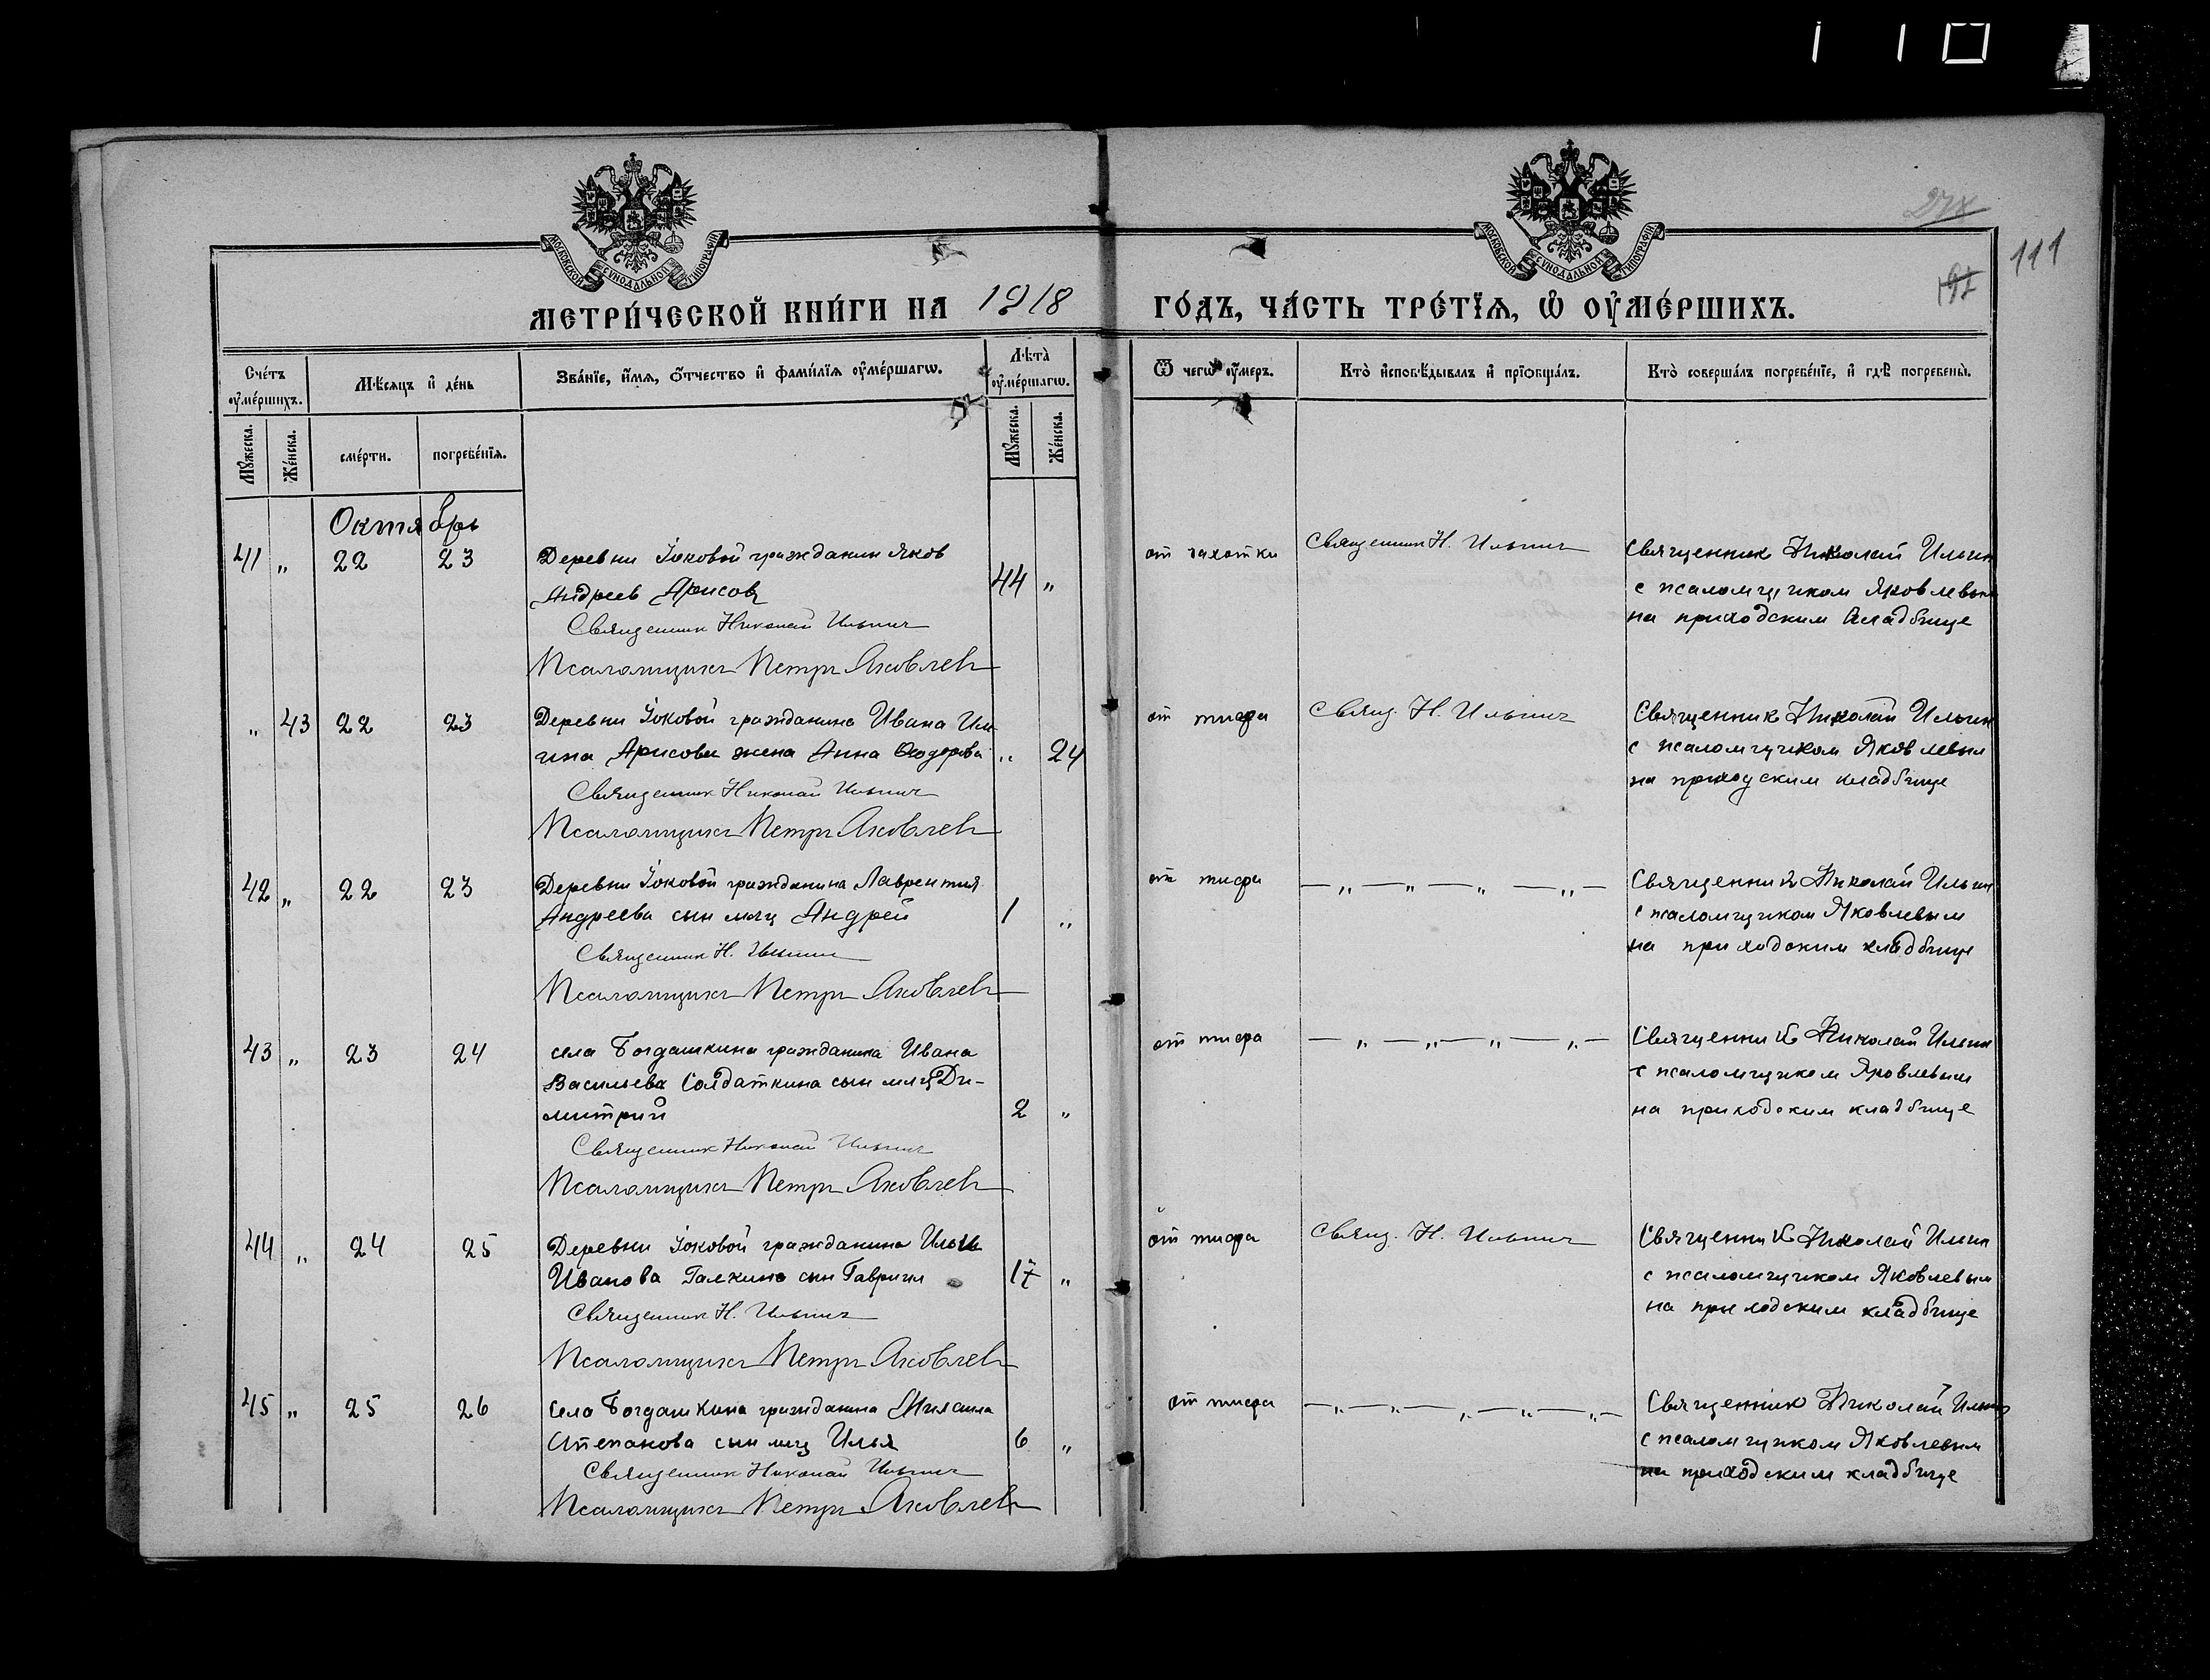 110
МОСКОВСКОЙ СѴНОДАЛЬНОЙ ТИПОГРАФІИ
МОСКОВСКОЙ СѴНОДАЛЬНОЙ ТИПОГРАФІИ
111
МЕТРИ́ЧЕСКОЙ КНИ́ГИ НА 1918 ГО́ДЪ, ЧА́СТЬ ТРЕ́ТЇѦ, Ѡ҆ ОУ҆МЕ́РШИХЪ.
Сче́тъ оу҆ме́ршихъ.
Мѣ́сѧцъ и҆ де́нь
Зва́нїе, и҆́мѧ, ѻ҆́тчество и҆ фами́лїѧ оу҆ме́ршагѡ.
Лѣта̀ оу҆ме́ршагѡ.
Ѿ чегѡ̀ оу҆́меръ.
Кто̀ и҆сповѣ́дывалъ и҆ прїѡбща́лъ.
Кто̀ соверша́лъ погребе́нїе, и҆ гдѣ̀ погребены̀.
Мꙋ́жеска.
Же́нска.
сме́рти.
погребе́нїѧ.
Мꙋ́жеска.
Же́нска.
Октябрь
41 „ 22 23 Деревни Іоковой гражданин Яков
Андреев Арисовъ 44 „
Священник Николай Ильин
Псаломщикъ Петръ Яковлевъ
от чахотки
Священник Н. Ильин
Священник Николай Ильин
с псаломщиком Яковлевым
на приходским кладбище
„ 43 22 23 Деревни Іоковой гражданина Ивана Иль
ина Арисова жена Анна Феодорова „ 24
Священник Николай Ильин
Псаломщикъ Петръ Яковлевъ
от тифа
Свящ. Н. Ильин
Священник Николай Ильин
с псаломщиком Яковлевым
на приходским кладбище
42 „ 22 23 Деревни Іоковой гражданина Лаврентия
Андреева сын млц Андрей 1 „
Священник Н. Ильин
Псаломщикъ Петръ Яковлевъ
от тифа
— „ — „ — „ — „ —
Священник Николай Ильин
с псаломщиком Яковлевым
на приходским кладбище
43 „ 23 24 села Богдашкина гражданина Ивана
Васильева Солдаткина сын млц Ди-
митрий 2 „
Священник Николай Ильин
Псаломщикъ Петръ Яковлевъ
от тифа
— „ — „ — „ — „ —
Священник Николай Ильин
с псаломщиком Яковлевым
на приходским кладбище
44 „ 24 25 Деревни Іоковой гражданина Ильи
Иванова Галкина сын Гавриил 17 „
Священник Н. Ильин
Псаломщикъ Петръ Яковлевъ
от тифа
Свящ. Н. Ильин
Священник Николай Ильин
с псаломщиком Яковлевым
на приходским кладбище
45 „ 25 26 села Богдашкина гражданина
Степанова сын млц Илья 6 „
Священник Николай Ильин
Псаломщикъ Петръ Яковлевъ
от тифа
— „ — „ — „ — „ —
Священник Николай Ильин
с псаломщиком Яковлевым
на приходским кладбище